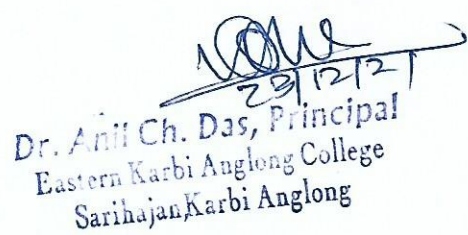 23/12/21
Dr. Anil Ch. Das, Principal
Eastern Karbi Anglong College
Sarihajan,Karbi Anglong